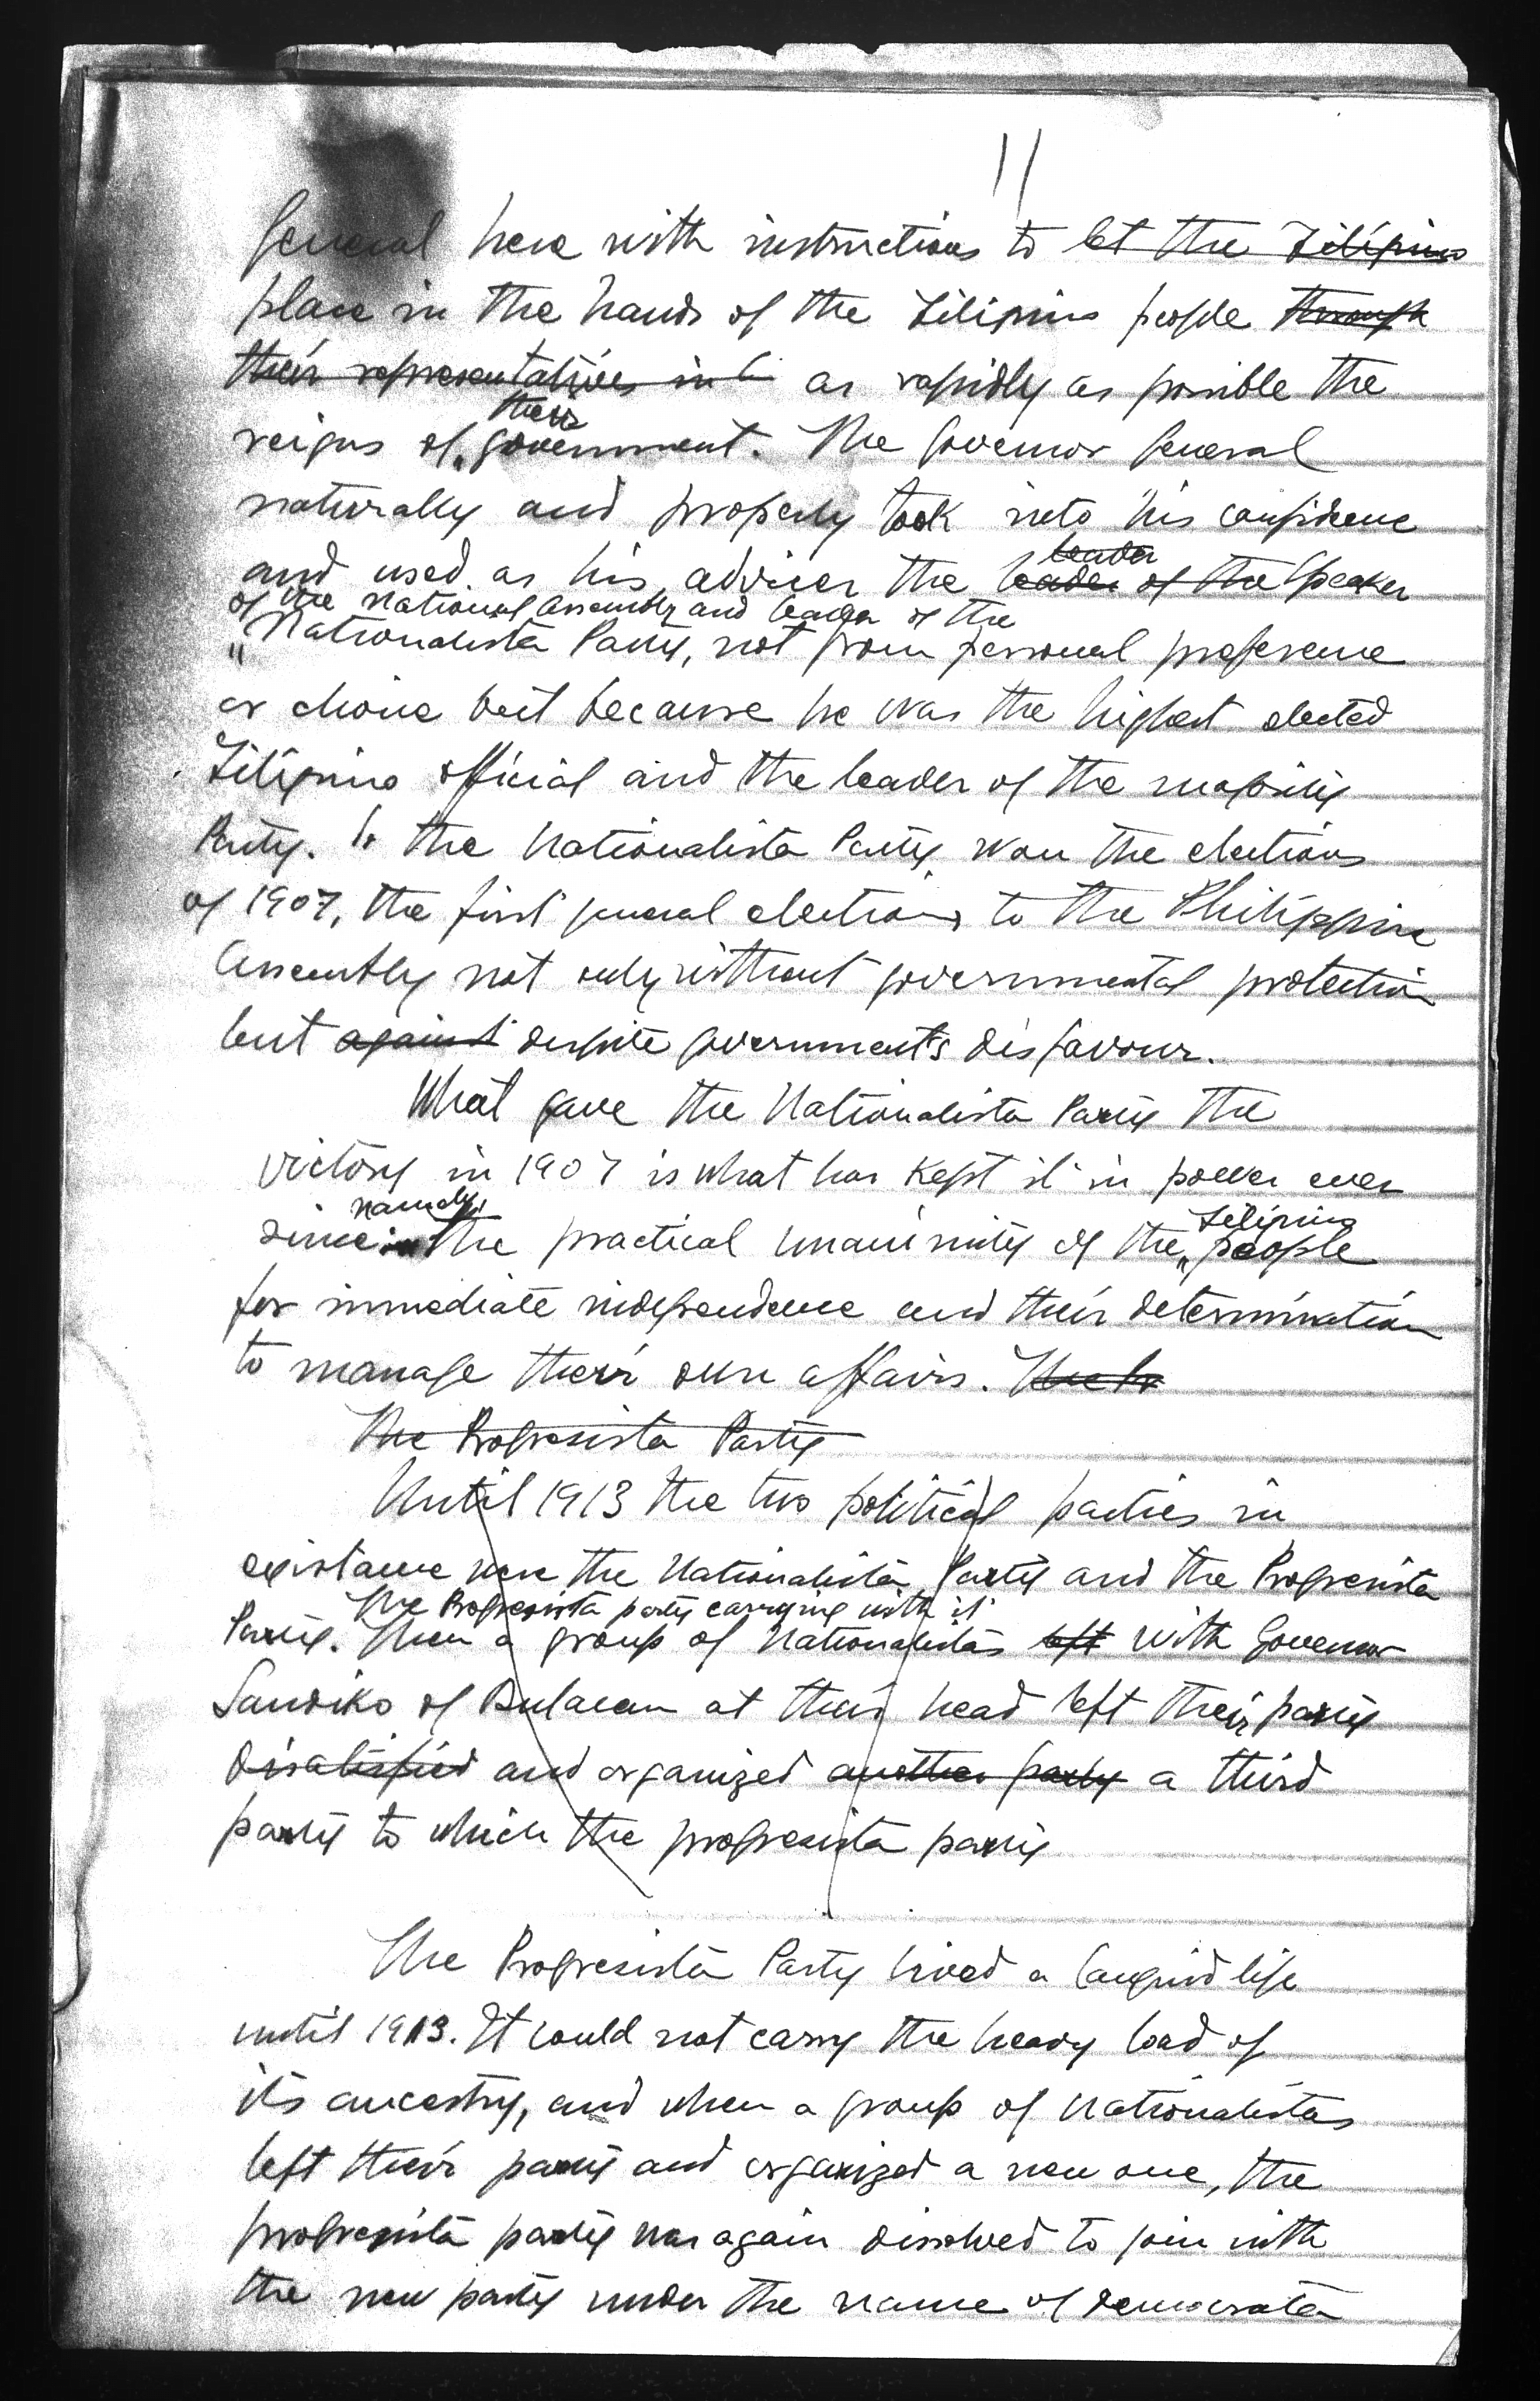 11
General here with instructions to let the Filipino
place in the hands of the Filipino people through
their representatives in as rapidly as possible the
their
reigns of government. The Governor General
naturally and properly took into his confidence
leader
and used as his adviser the leader of the Speaker
of the National Assembly and leader of the
Nationalista Party, not from personal preference
or choice but because he was the highest elected
Filipino official and the leader of the majority
Party. the Nationalista Party won the elections
of 1907, the first general elections to the Philippine
Assembly not only without governmental protection
but against despite government's disfavour.
What gave the Nationalista Party the
victory in 1907 is what has kept it in power ever
namely, Filipino
since: the practical unanimity of the people
for immediate independence and their determination
to manage their own affairs.
The Progresista Party
Until 1913 the two political parties in
existance were the Nationalista Party and the Progresista
The Progresista party carrying with it
Party. Then a group of Nationalistas left with Governor
Sandiko of Bulacan at their head left their party
disatisfied and organized another party a third
party to which the progresista party
The Progresista Party lived a languid life
until 1913. It could not carry the heavy load of
its ancestry, and when a group of Nationalistas
left their party and organized a new one, the
progresista party was again dissolved to join with
the new party under the name of democrata